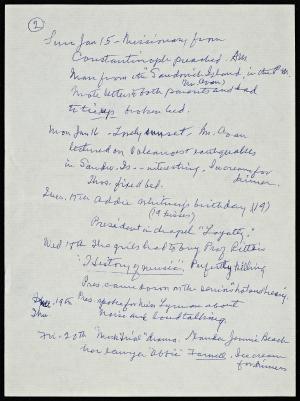 2
Sun Jan 15 - Missionary from
Constantinople preached. Also
Man from the "Sandwich Island, in the P.M.
(Mr. Coan)
Wrote letters to both parents and had
to tie up broken bed.
Mon Jan 16 - Lovely sunset, Mr. Coan
lectured on Volcanoes & earthquakes
in Sandw. Is - interesting. Ice cream for
dinner.
Thos. fixed bed.
Tues. 17th Addie Whiting's birthday (19)
(19 kisses)
President in chapel "Loyalty."
Wed 18th The girls had to buy Prof Ritter's
"History of music". Perfectly killing
Pres. came down on the seniors hot and heavy.
19th Pres. spoke for Miss Lyman about
Thu
noise and loud talking.
Fri. 20th "Mock Trial" drama. Jennie Beach
her lawyer "Abbie" Farwell. Ice cream
for dinners